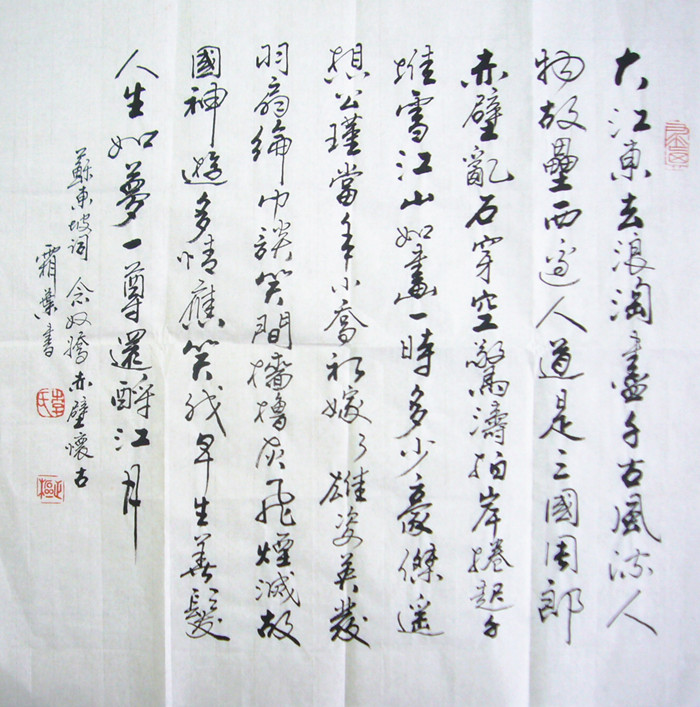 大江東去浪淘盡千古風流人
物故壘西邊人道是三國周郎
赤壁亂石穿空驚濤拍岸捲起千
堆雪江山如畫一時多少豪傑遥
想公瑾當年小喬初嫁了雄姿英發
羽扇綸巾談笑間檣櫓灰飛煙滅故
國神遊多情應笑我早生華髮
人生如夢一尊還酹江月
蘇東坡词 念奴嬌赤壁懷古
霜葉書